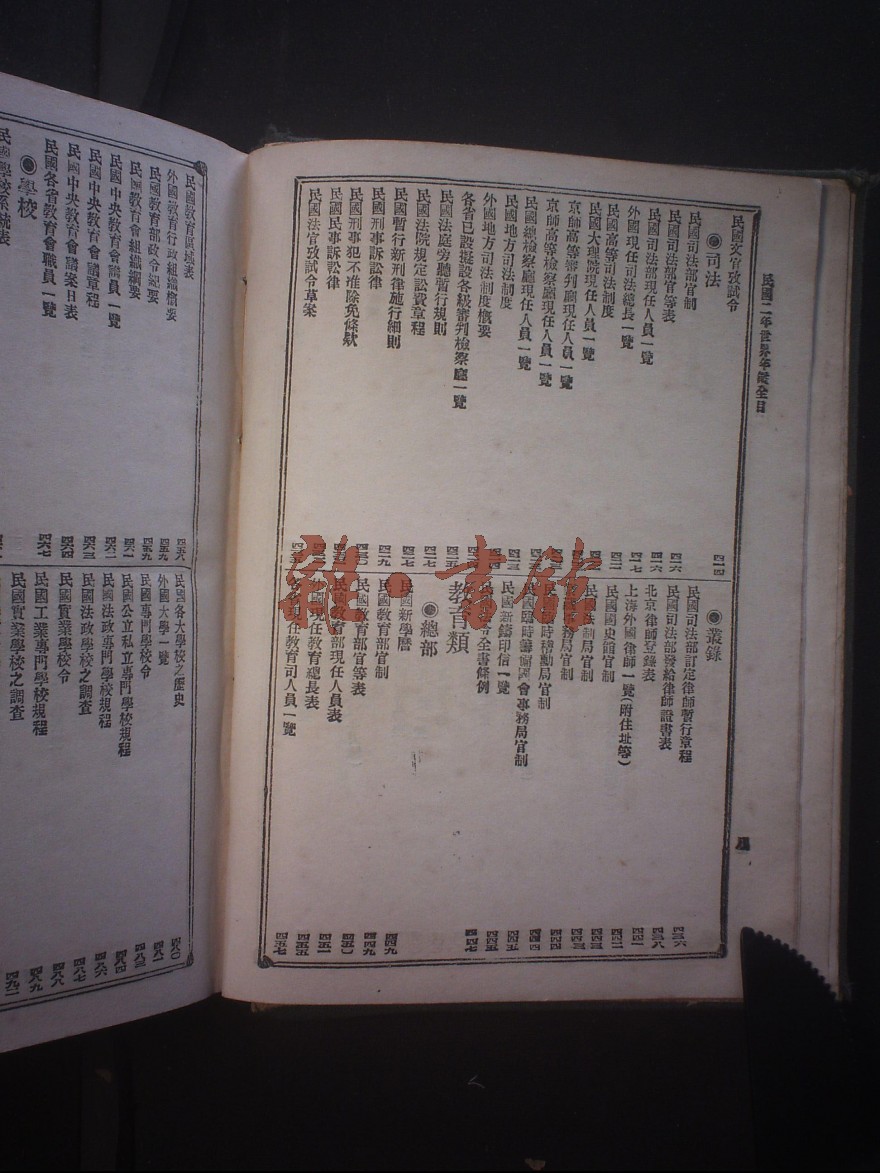 民國二年世界年鑑全目
八
民國文官攷試令 四一四
◉司法
民國司法部官制 四一六
民國司法部官等表 四一六
民國司法部現任人員一覽 四一七
外國現任司法總長一覽
民國高等司法制度
民國大理院現任人員一覽
京師高等審判廳現任人員一覽
京師高等檢察廳現任人員一覽
民國總檢察廳現任人員一覽
民國地方司法制度
外國地方司法制度概要
各省已設擬設各級審判檢察廳一覽
民國法庭旁聽暫行規則 四二五
民國法院規定訟費章程 四二七
民國暫行新刑律施行細則 四二七
民國刑事訴訟律 四二九
民國刑事犯不准除免條欵
民國民事訴訟律
民國法官攷試令草案
◉叢錄
民國司法部訂定律師暫行章程 四三六
民國司法部發給律師證書表 四三八
北京律師登錄表 四四一
上海外國律師一覽(附住址等) 四四二
民國國史館官制 四四三
民國法制局官制 四四三
事務局官制 四四四
時稽勳局官制 四四四
民國臨時籌備國會事務局官制 四四五
民國新鑄印信一覽 四四五
令全書條例 四四七
教育類
◉總部
民國新學曆 四四九
民國教育部官制 四四九
民國教育部官等表 四五〇
民國教育部現任人員表 四五一
國現任教育總長表 四五五
現任教育司人員一覽 四五七
民國教育區域表 四五八
外國教育行政組織概要 四五九
民國教育部政令紀要 四五九
民國教育會組織綱要 四六一
民國中央教育會議員一覽 四六二
民國中央教育會議章程 四六三
民國中央教育會議案日表 四六四
民國各省教育會職員一覽 四六七
◉學校
民國學校系統表
民國各大學校之歷史 四八〇
外國大學一覽 四八一
民國專門學校令 四八三
民國公立私立專門學校規程 四八四
民國法政專門學校規程 四八六
民國法政學校之調查 四八七
民國實業學校令 四八八
民國工業專門學校規程 四八九
民國實業學校之調查 四九二
雜·書館